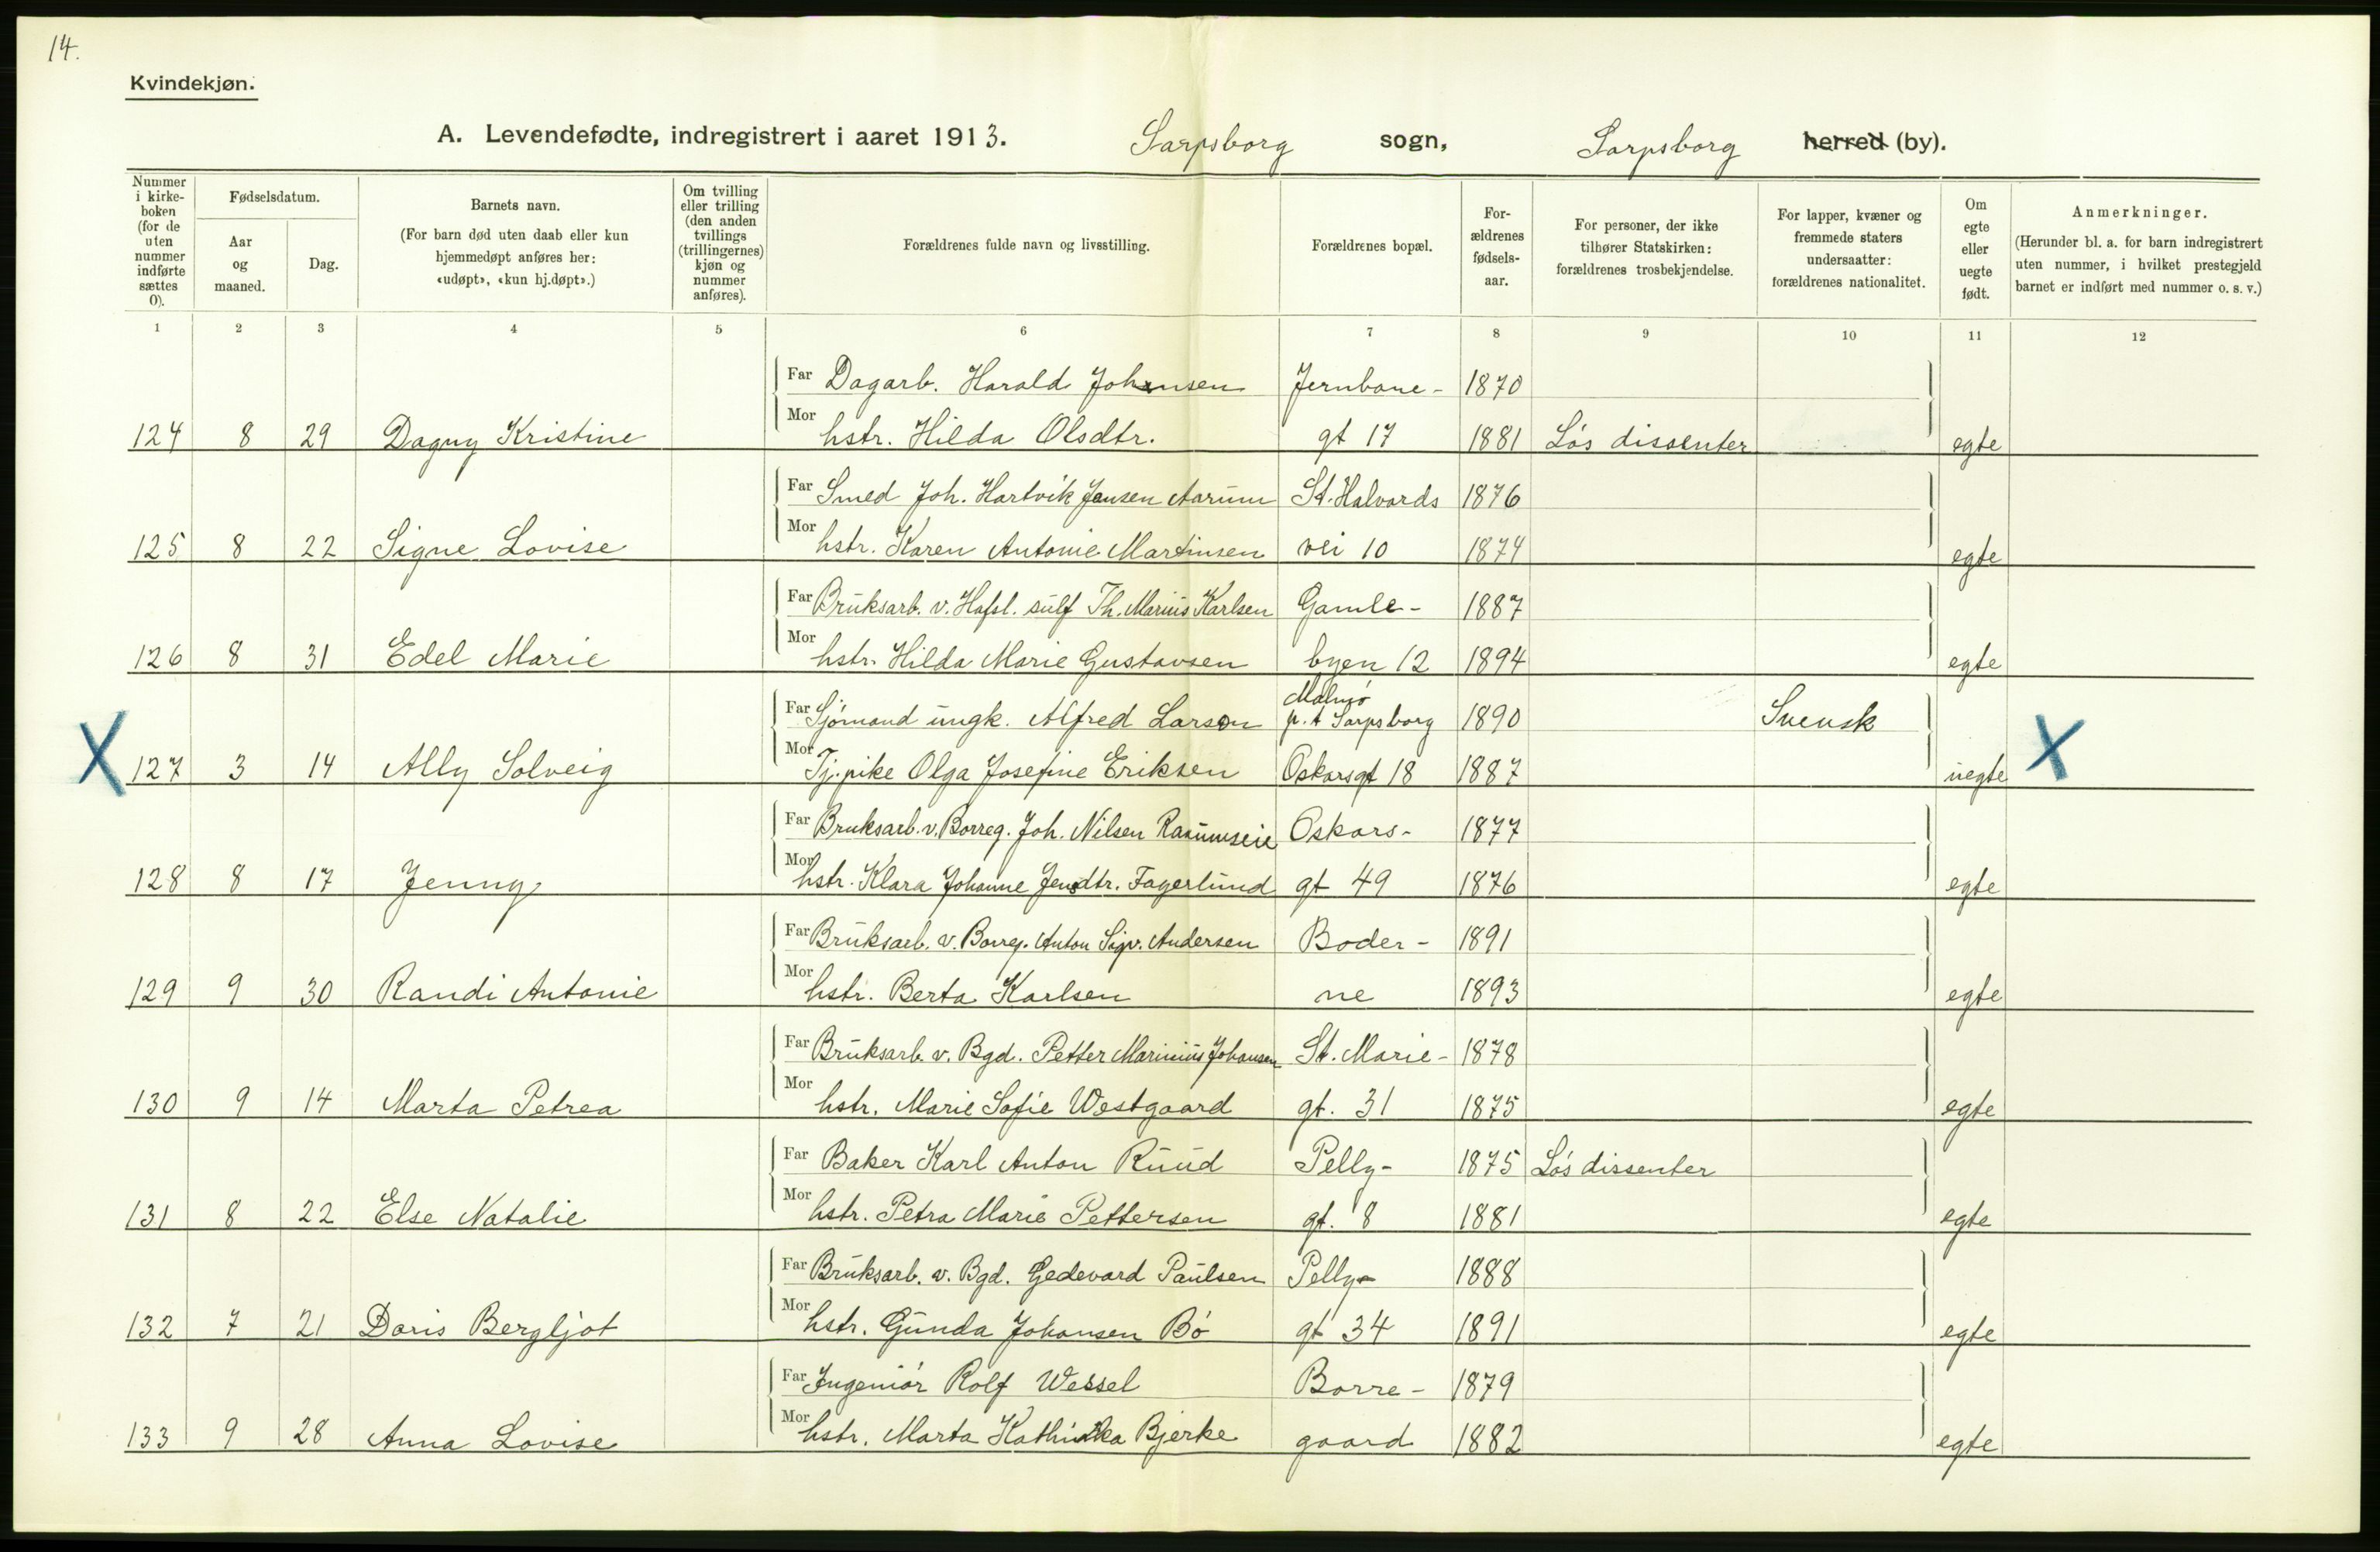 14.
Kvindekjøn.
A. Levendefødte, indregistrert i aaret 1913. Sarpsborg sogn, Sarpsborg herred (by).
Nummer i kirke-boken (for de uten nummer indførte sættes 0).
Fødselsdatum.
Aar og maaned.
Dag.
Barnets navn.
(For barn død uten daab eller kun hjemmedøpt anføres her: «udøpt», «kun hj.døpt».)
Om tvilling eller trilling (den anden tvillings (trillingernes) kjøn og nummer anføres).
Forældrenes fulde navn og livsstilling.
Forældrenes bopæl.
For-ældrenes fødsels-aar.
For personer, der ikke tilhører Statskirken: forældrenes trosbekjendelse.
For lapper, kvæner og fremmede staters undersaatter: forældrenes nationalitet.
Om egte eller uegte født.
Anmerkninger.
(Herunder bl. a. for barn indregistrert uten nummer, i hvilket prestegjeld barnet er indført med nummer o. s. v.)
1 2 3 4 5 6 7 8 9 10 11 12
Far Dagarb. Harald Johansen Jernbane- 1870
124 8 29 Dagny Kristine Mor hstr. Hilda Olsdtr. gt 17 1881 Løs dissenter egte
Far Smed Joh. Hartvik Jansen Aarum St. Halvards 1876
125 8 22 Signe Lovise Mor hstr. Karen Antonie Martinsen vei 10 1874 egte
Far Bruksarb. v. Hafsl. sulf Th. Marius Karlsen Gamle- 1887
126 8 31 Edel Marie Mor hstr. Hilda Marie Gustavsen byen 12 1894 egte
Malmø
Far Sjømand ungk. Alfred Larson p.t Sarpsborg 1890 Svensk
X 127 3 14 Ally Solveig Mor Tj.pike Olga Josefine Eriksen Oskarsgt 18 1887 uegte X
Far Bruksarb. v. Borreg. Joh. Nilsen Oskars- 1877
128 8 17 Jenny Mor hstr. Klara Johanne Jensdtr. Fagerlund gt 49 1876 egte
Far Bruksarb. v. Borreg. Anton Sigv. Andersen Boder- 1891
129 9 30 Randi Antonie Mor hstr. Berta Karlsen ne 1893 egte
Far Bruksarb. v. Bgd. Petter Marinius Johansen St. Marie- 1878
130 9 14 Marta Petrea Mor hstr. Marie Sofie Westgaard gt. 31 1875 egte
Far Baker Karl Anton Ruud Pelly- 1875 Løs dissenter
131 8 22 Else Natalie Mor hstr. Petra Marie Pettersen gt. 8 1881 egte
Far Bruksarb. v. Bgd. Gedevard Paulsen Pelly- 1888
132 7 21 Doris Bergljot Mor hstr. Gunda Johansen Bø gt 34 1891 egte
Far Ingeniør Rolf Wessel Borre- 1879
133 9 28 Anna Lovise Mor hstr. Marta Kathinka Bjerke gaard 1882 egte